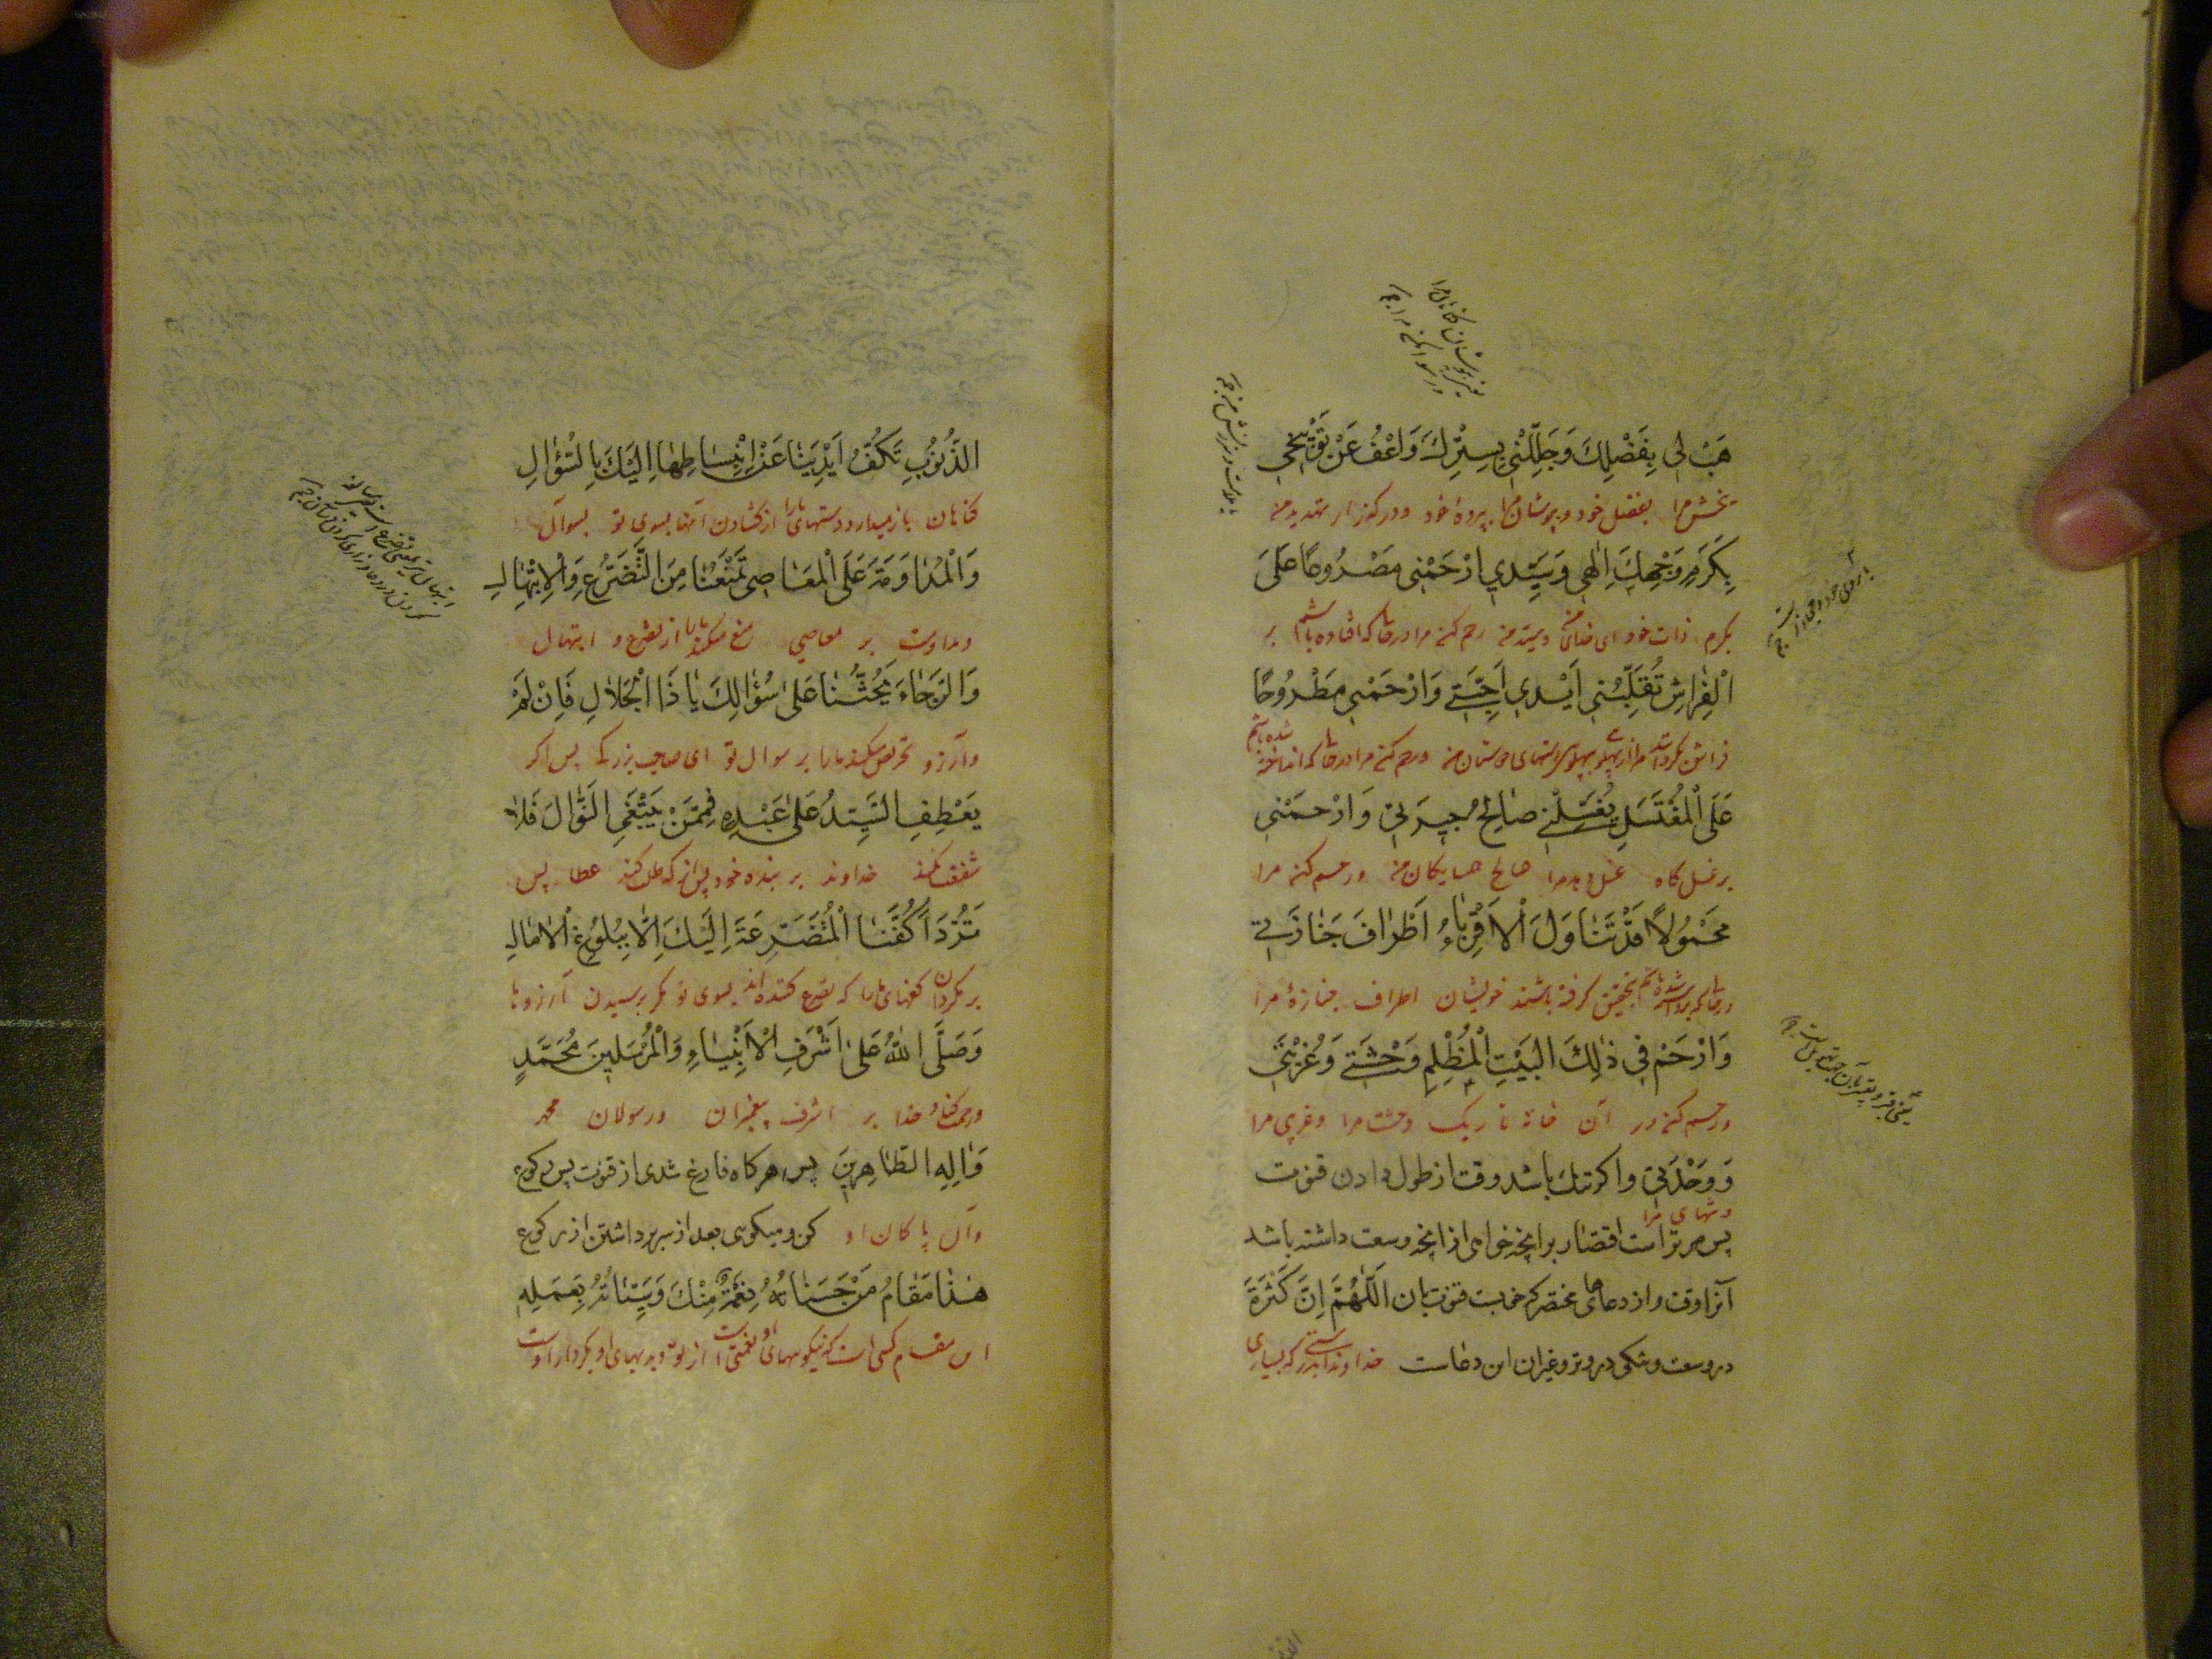 هَبْ لِی بِفَضْلِكَ وَجَلِّلْنِی بِسِتْرِكَ وَاعْفُ عَنْ تَوْبِیخِی
ببخش مرا بفضل خود و بپوشان مرا بپردهٔ خود و درگذر از تهدید من
بِكَرَمِ وَجْهِكَ اِلٰهِی وَسَیِّدِی ارْحَمْنِی مَصْرُوعًا عَلَی
بکرم ذات خود ای خدای من و سید من رحم کن مرا در حالتی که افتاده باشم بر
الْفِرَاشِ تُقَلِّبُنِی اَیْدِی اَحِبَّتِی وَارْحَمْنِی مَطْرُوحًا
فراش دستهای دوستان من و رحم کن مرا در حالتی که انداخته شده باشم
عَلَی الْمُغْتَسَلِ یُغَسِّلُنِی صَالِحُ جِیرَتِی وَارْحَمْنِی
بر غسل گاه غسل دهد مرا صالح همسایگان من و رحم کن مرا
مَحْمُولًا قَدْ تَنَاوَلَ الْاَقْرِبَاءُ اَطْرَافَ جَنَازَتِی
بتحقیق گرفته باشند خویشان اطراف جنازهٔ مرا
وَارْحَمْ فِی ذٰلِكَ الْبَیْتِ الْمُظْلِمِ وَحْشَتِی وَغُرْبَتِی
و رحم کن در آن خانهٔ تاریک وحشت مرا و غریبی مرا
وَوَحْدَتِی واکر تنك باشد وقت از طول دادن قنوت
و تنهایی مرا
پس مر تراست اقتصار بر انچه خواهی از انچه وسعت داشته باشد
آنرا وقت و از دعاهای مختصر که خوبست قنوت بان اَللّٰهُمَّ اِنَّ كَثْرَةَ
در وسعت و تنکی در وتر و غیران این دعاست خداوندا بدرستی که بسیاری
الذُّنُوبِ تَكُفُّ اَیْدِیَنَا عَنْ اِنْبِسَاطِهَا اِلَیْكَ بِالسُّؤَالِ
کناهان باز میدارد دستهای ما را از کشادن آنها بسوی تو بسوآل
وَالْمُدَاوَمَةَ عَلَی الْمَعَاصِی تَمْنَعُنَا مِنَ التَّضَرُّعِ وَالْاِبْتِهَالِ
و مداومت بر معاصی منع میکند ما را از تضرع و ابتهال
وَالرَّجَاءَ یَحُثُّنَا عَلٰی سُؤَالِكَ یَا ذَا الْجَلَالِ فَاِنْ لَمْ
و آرزو تحریص میکند ما را بر سوال تو ای صاحب بزرگی پس اگر
یَعْطِفِ السَّیِّدُ عَلٰی عَبْدِهِ فَمِمَّنْ یَبْتَغِی النَّوَالَ فَلَا
شفقت نکند خداوند بر بنده خود پس از که طلب کند عطا پس
تَرُدَّ اَكُفَّنَا الْمُتَضَرِّعَةَ اِلَیْكَ اِلَّا بِبُلُوغِ الْاٰمَالِ
بر مگردان کفهای ما را که تضرع کننده اند بسوی تو مگر برسیدن آرزوها
وَصَلَّی اللّٰهُ عَلٰی اَشْرَفِ الْاَنْبِیَاءِ وَالْمُرْسَلِینَ مُحَمَّدٍ
و رحمت کناد خدا بر اشرف پیغمبران و رسولان محمد
وَاٰلِهِ الطَّاهِرِینَ پس هرکاه فارغ شدی از قنوت پس رکوع
وآل پاکان او کن و میکوی بعد از سر برداشتن از رکوع
هٰذَا مَقَامُ مَنْ حَسَنَاتُهُ نِعْمَةٌ مِنْكَ وَسَیِّئَاتُهُ بِعَمَلِهِ
این مقام کسی است که نیکوییهای او نعمتی است از تو و بدیهای او بکردار اوست